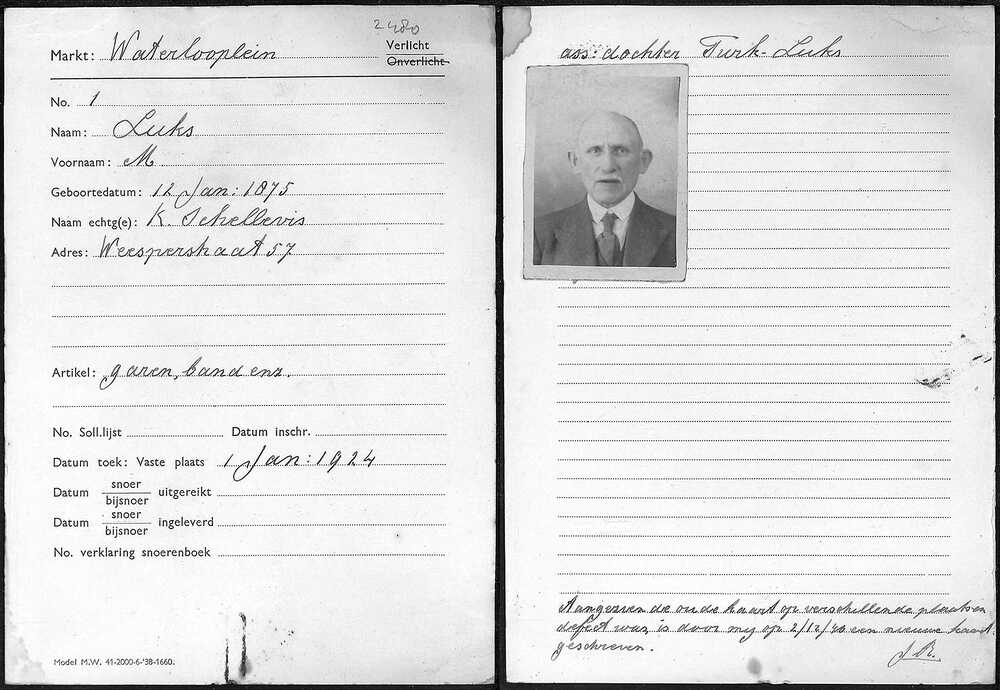 2480
Markt: Waterlooplein
Verlicht
Onverlicht
No. 1
Naam: Luks
Voornaam: M
Geboortedatum: 12 Jan: 1875
Naam echtg(e): K. Schellevis
Adres: Weesperstraat 57
Artikel: garen, band enz.
No. Soll.lijst Datum inschr.
Datum toek: Vaste plaats 1 Jan: 1924
Datum snoer/bijsnoer uitgereikt
Datum snoer/bijsnoer ingeleverd
No. verklaring snoerenboek
Model M.W. 41-2000-6-'38-1660.
ass: dochter Turk-Luks
Aangezien de oude kaart op verschillende plaatsen
defect was is door mij op 2/12/40 een nieuwe kaart
geschreven.
J.R.